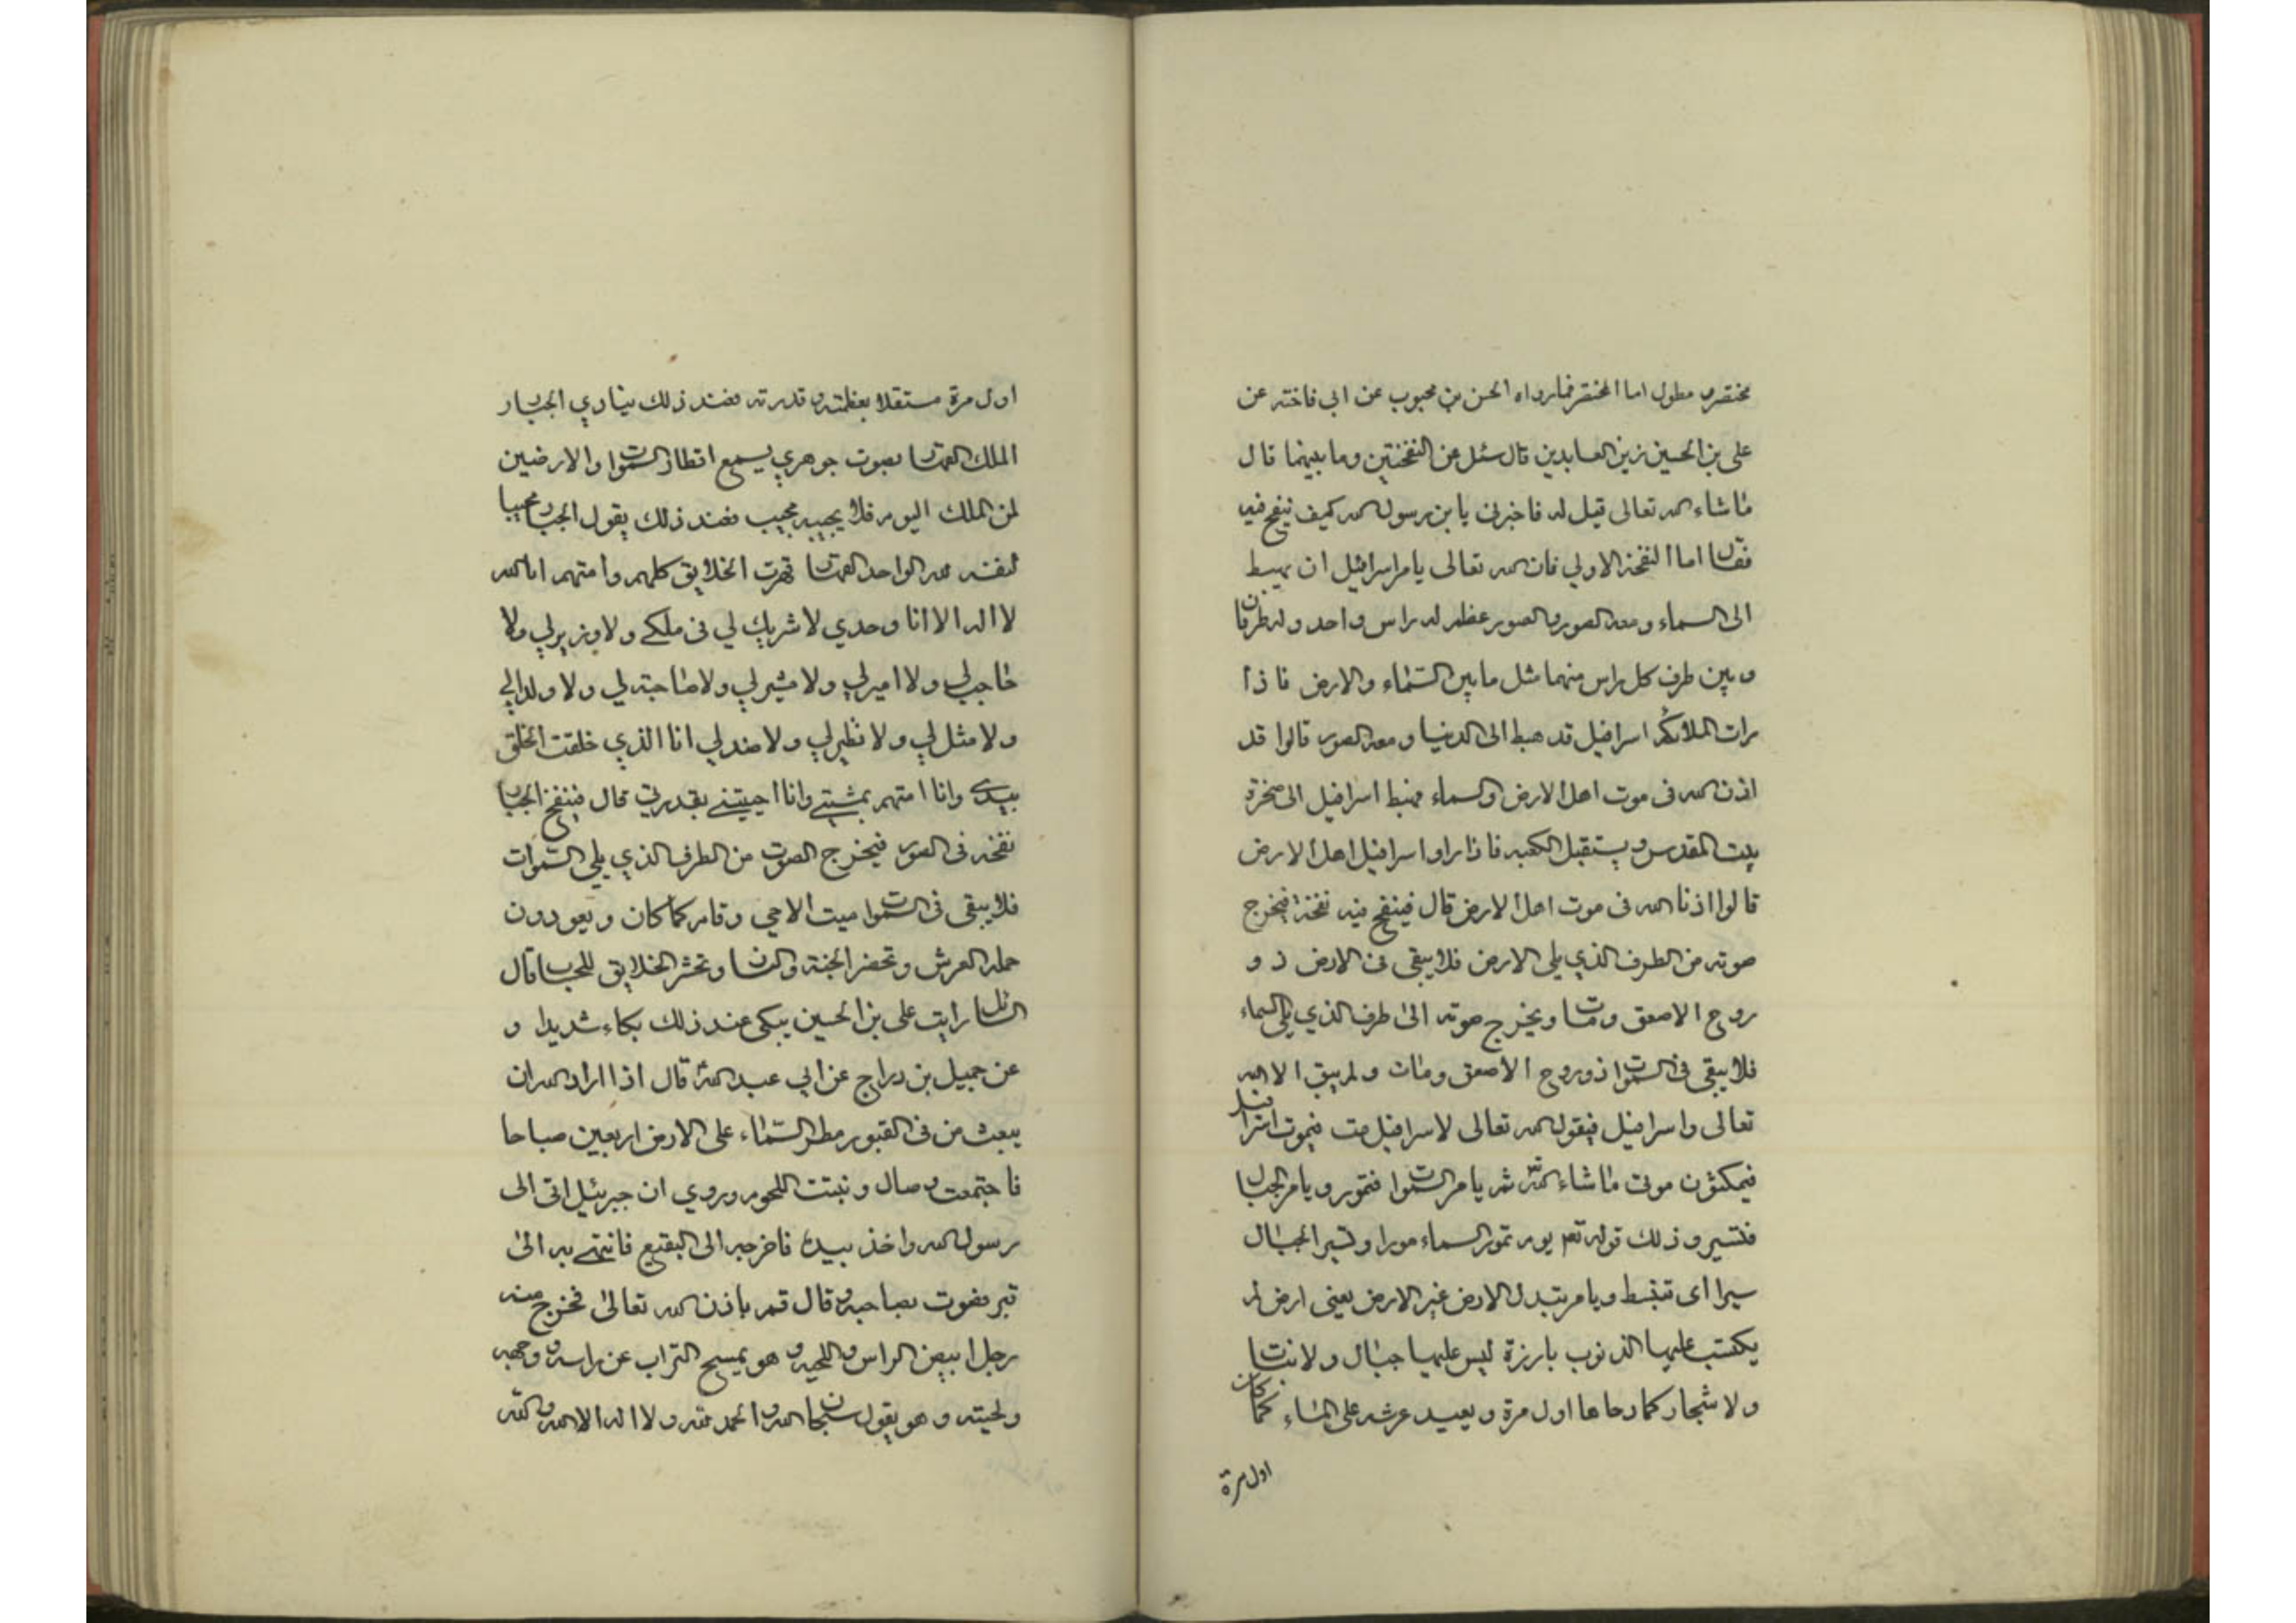 مختصر و مطول اما المختصر فمارواه الحسن بن محبوب عن ابى فاخته عن
على بن الحسين زين العابدين قال سئل عن النفختين وما بينهما قال
ماشاء الله تعالى قيل له فاخبرنى يا بن رسول الله كيف ينفخ فيه
فقال اما النفخة الاولي فان الله تعالى يامر اسرافيل ان يهبط
الى السماء ومعه الصور والصور عظم له راس واحد وله طرفان
وبين طرف كل راس منهما مثل مابين السماء والارض فاذا
رات الملائكه اسرافيل قد هبط الى الدنيا ومعه الصور قالوا قد
اذن الله فى موت اهل الارض والسماء فهبط اسرافيل الى صخرة
بيت المقدس ويستقبل الكعبه فاذا راوا اسرافيل اهل الارض
قالوا اذنا الله فى موت اهل الارض قال فينفخ فيه نفخة فيخرج
صوته من الطرف الذي يلى الارض فلا يبقى فى الارض ذو
روح الا صعق ومات ويخرج صوته الى طرف الذي يلى السماء
فلا يبقى فى السموات ذو روح الا صعق ومات ولم يبق الا الله
تعالى واسرافيل فيقول الله تعالى لاسرافيل مت فيموت اسرافيل
فيمكثون موت ماشاء الله ثم يامر السموات فتمور ويامر الجبال
فتسير وذلك قوله تعم يوم تمور السماء مورا وتسير الجبال
سيرا اى تنبسط ويامر بتبدل الارض غير الارض يعنى ارض لم
يكتسب عليها الذنوب بارزة ليس عليها جبال ولا نبات
ولا شجار كما دحاها اول مرة ويعيد عرشه على الماء كما كان
اول مرة
اول مرة مستقلا بعظمته وقدرته فعند ذلك ينادي الجبار
الملك القهار بصوت جوهري يسمع اقطار السموات والارضين
لمن الملك اليوم فلا يجيبه مجيب فعند ذلك يقول الجبار مجيبا
لنفسه لله الواحد القهار قهرت الخلايق كلهم وامتهم انا الله
لا اله الا انا وحدي لا شريك لي فى ملكے ولا وزير لي ولا
حاجب لي ولا امير لي ولا مشير لي ولا صاحبة لي ولا ولدا لي
ولا مثل لي ولا نظير لي ولا ضد لي انا الذي خلقت الخلق
بيدے وانا امتهم بمشيتے وانا احييتنے بقدرتي قال فينفخ الجبار
نفخه فى الصور فيخرج الصوت من الطرف الذي يلي السموات
فلا يبقى فى السموات ميت الا حي وقام كما كان ويعودون
حملة العرش وتحضر الجنة والنار وتحشر الخلايق للحساب قال
السائل رايت على بن الحسين يبكى عند ذلك بكاء شديدا و
عن جميل بن دراج عن ابي عبد الله قال اذا اراد الله ان
يبعث من فى القبور مطر السماء على الارض اربعين صباحا
فاجتمعت وصال ونبتت اللحوم وروي ان جبرئيل اتى الى
رسول الله واخذ بيده فاخرجه الى البقيع فانتهے به الى
قبر فصوت بصاحبه وقال قم باذن الله تعالى فخرج منه
رجل ابيض الراس واللحيه وهو يمسح التراب عن راسه ووجهه
ولحيته وهو يقول سبحان الله والحمد لله ولا اله الا الله والله